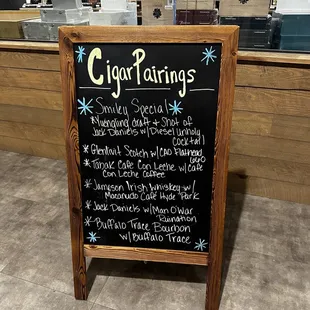 Cigar Pairings
Smiley Special
* Yuengling draft & Shot of
Jack Daniels w/ Diesel Unholy
Cocktail
* Glenlivit Scotch w/ CAO Flathead
* Tabak Cafe Con Leche w/ Cafe
Con Leche Coffee
* Jameson Irish Whiskey w/
Macanudo Cafe Hyde Park
* Jack Daniels w/ Man O'War
Ruination
* Buffalo Trace Bourbon
w/ Buffalo Trace